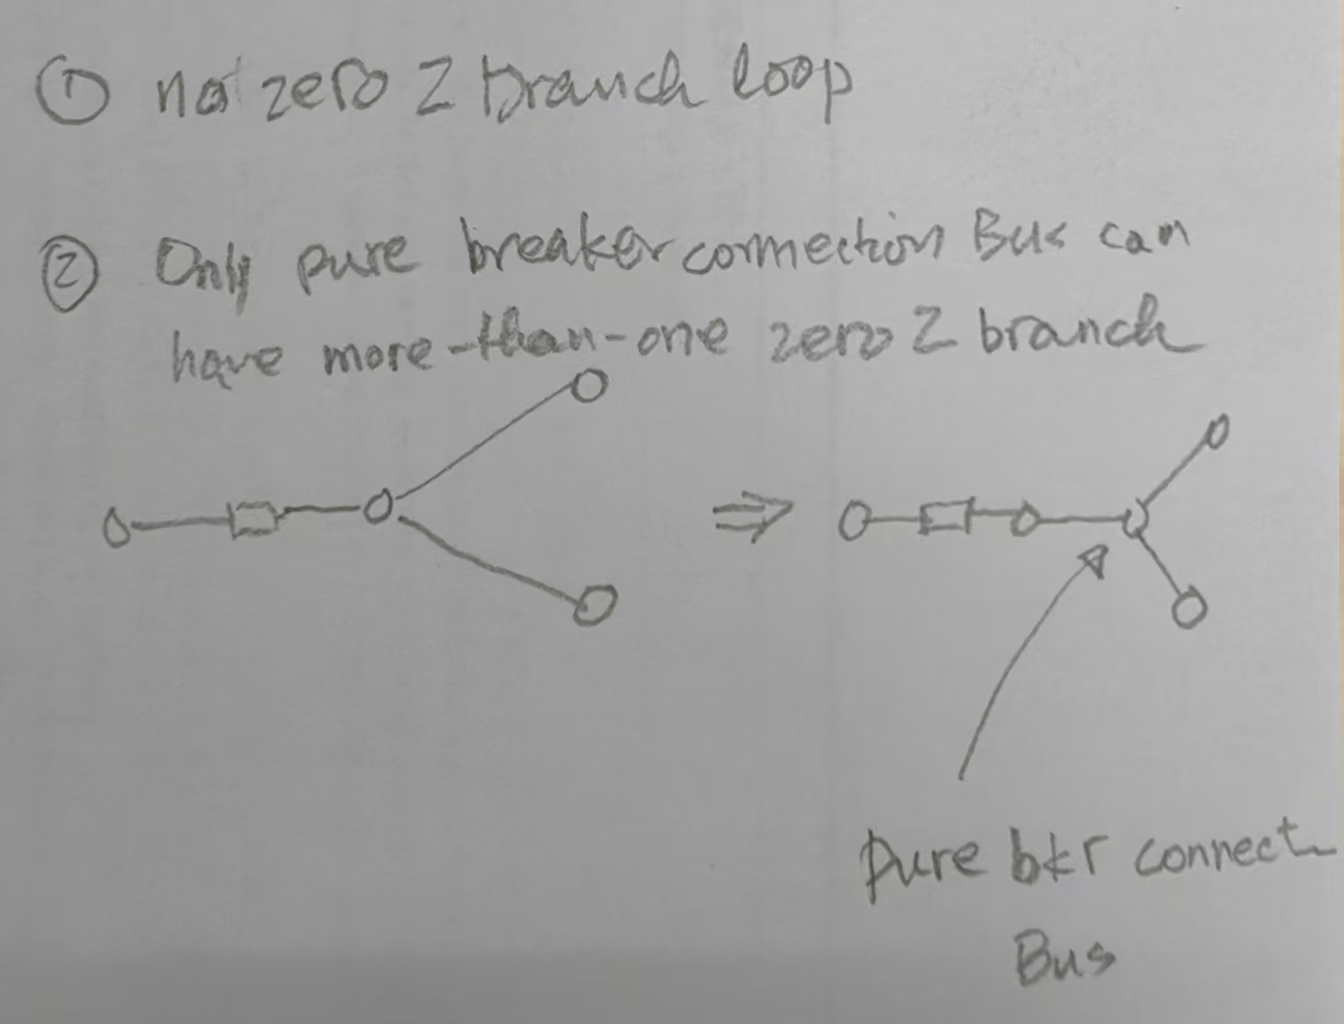 ① no zero Z branch loop
② Only pure breaker connection Bus can
have more-than-one zero Z branch
⇒
Pure bkr connect
Bus